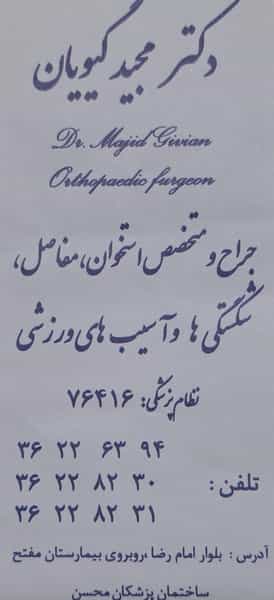 دکتر مجید گیویان
Dr. Majid Givian
Orthopaedic furgeon
جراح و متخصص استخوان، مفاصل،
شکستگی ها و آسیب های ورزشی
نظام پزشکی: ۷۶۴۱۶
۳۶ ۲۲ ۶۳ ۹۴
تلفن: ۳۶ ۲۲ ۸۲ ۳۰
۳۶ ۲۲ ۸۲ ۳۱
آدرس: بلوار امام رضا، روبروی بیمارستان مفتح
ساختمان پزشکان محسن